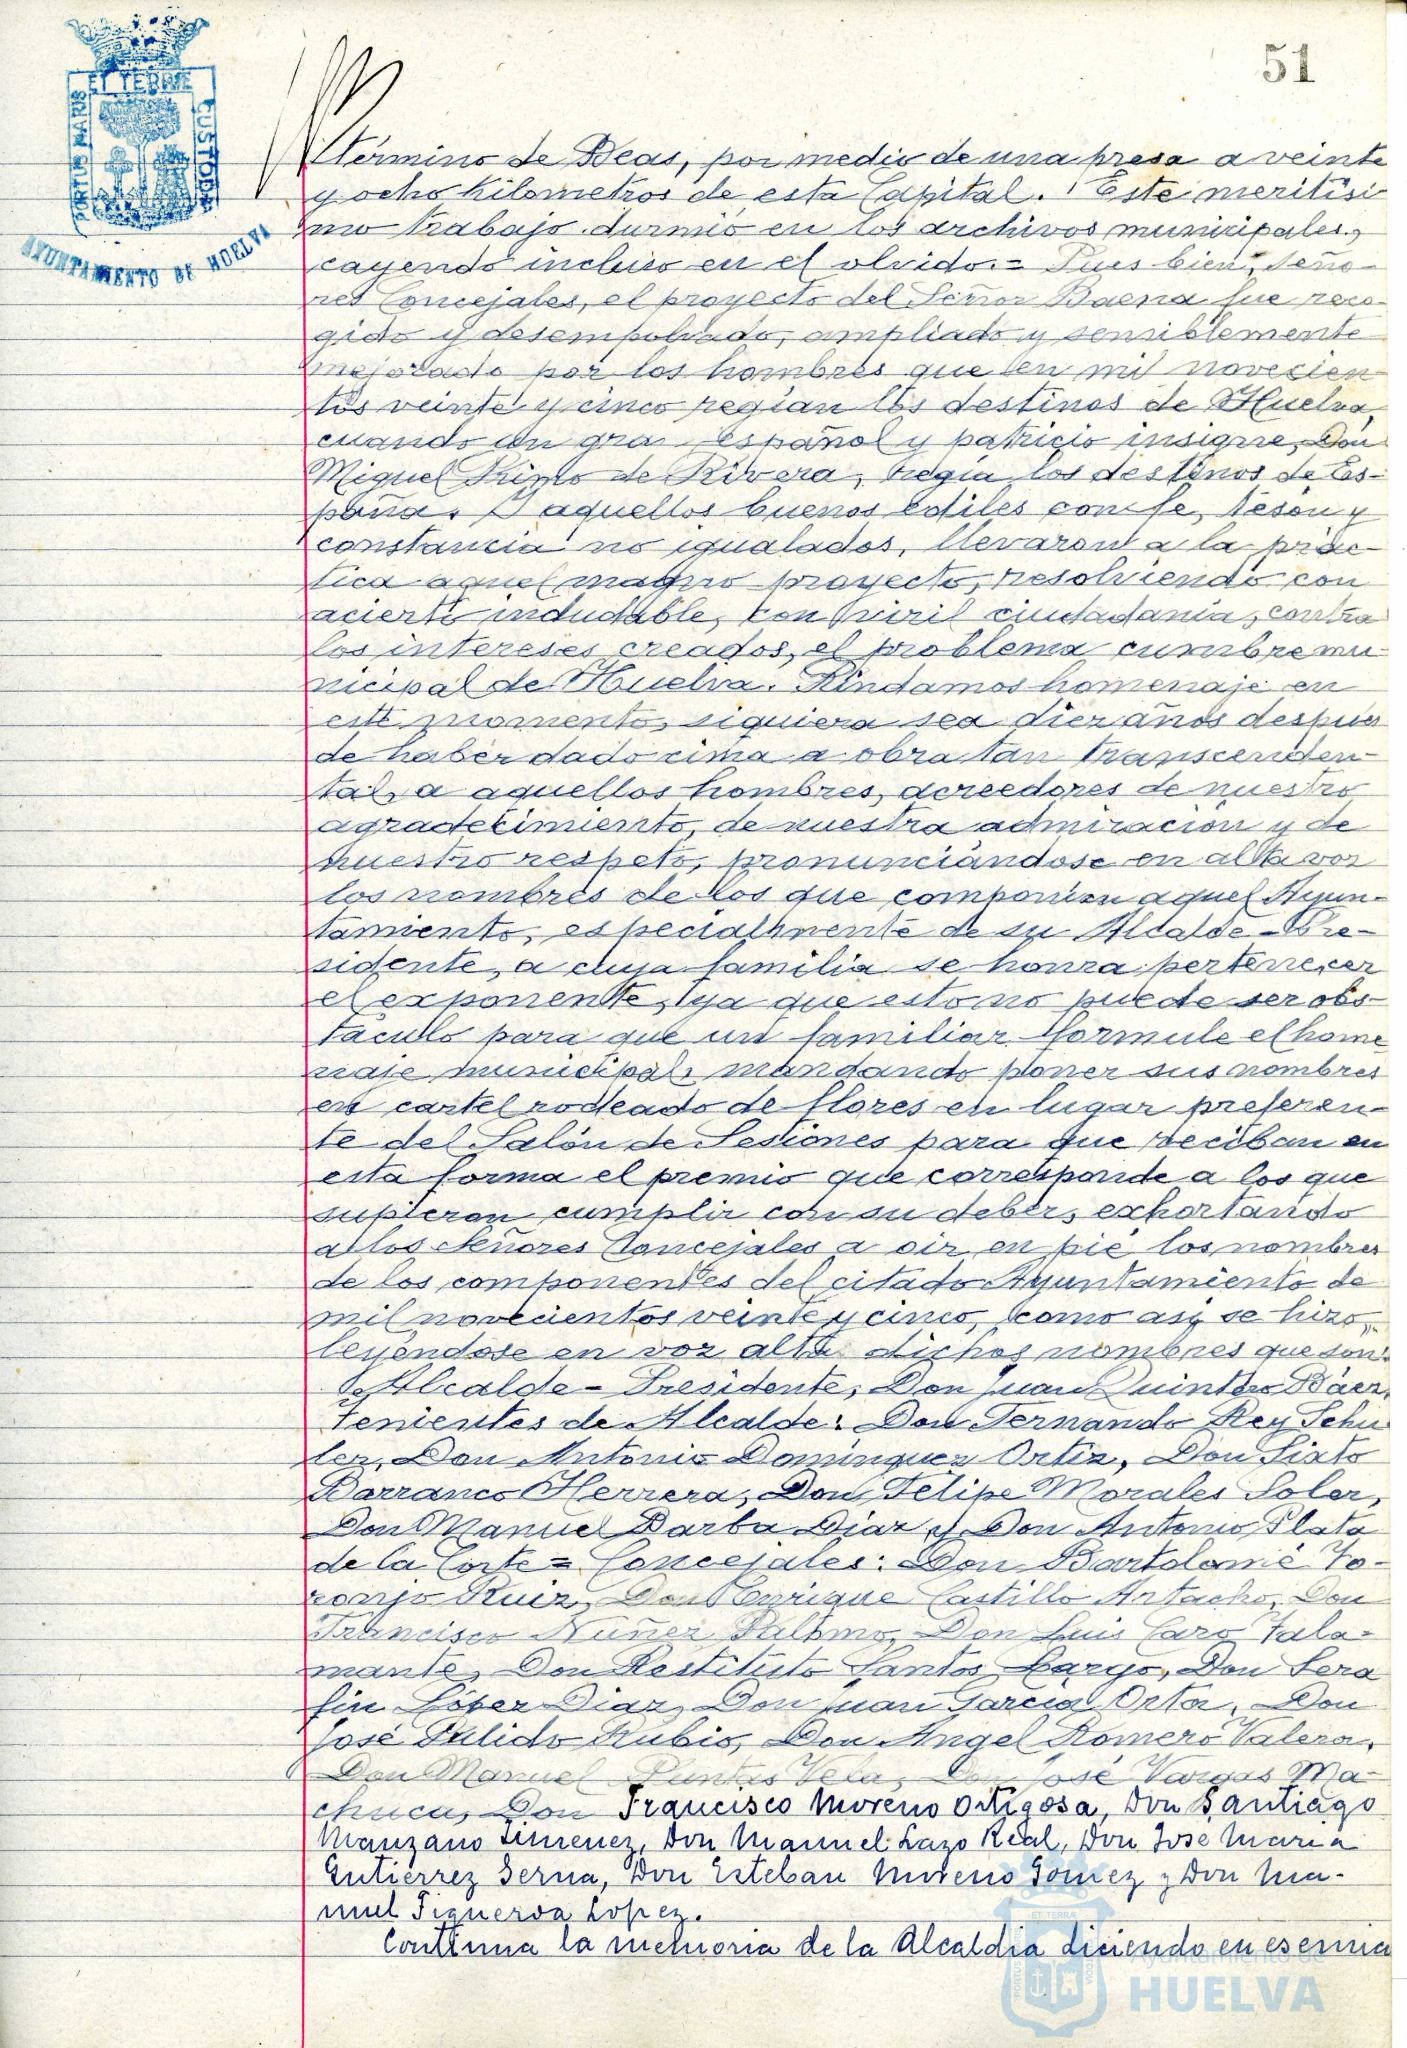 51
ET TERRAE
PORTUS MARIS
CUSTODIA
AYUNTAMIENTO DE HUELVA
término de Beas, por medio de una presa a veinte
y ocho kilometros de esta Capital. Este meritisi-
mo trabajo durmió en los archivos municipales,
cayendo incluso en el olvido.= Pues bien, Seño-
res Concejales, el proyecto del Señor Baena fue reco-
gido y desempolvado, ampliado y sensiblemente
mejorado por los hombres que en mil novecien
tos veinte y cinco regían los destinos de Huelva,
cuando un gran español y patricio insigne, Don
Miguel Primo de Rivera, regía los destinos de Es-
paña. Y aquellos buenos ediles con fe, tesón y
constancia no igualados, llevaron a la prác-
tica aquel magno proyecto, resolviendo con
acierto indudable, con viril ciudadanía, contra
los intereses creados, el problema cumbre mu-
nicipal de Huelva. Rindamos homenaje en
este momento, siquiera sea diez años después
de haber dado cima a obra tan transcenden-
tal, a aquellos hombres, acreedores de nuestro
agradecimiento, de nuestra admiración y de
nuestro respeto, pronunciándose en alta voz
los nombres de los que componían aquel Ayun-
tamiento, especialmente de su Alcalde-Pre-
sidente, a cuya familia se honra pertenecer
el exponente, ya que esto no puede ser obs-
taculo para que un familiar formule el home
naje municipal, mandando poner sus nombres
en cartel rodeado de flores en lugar preferen-
te del Salón de Sesiones para que reciban en
esta forma el premio que corresponde a los que
supieron cumplir con su deber, exhortando
a los Señores Concejales a oir en pié los nombres
de los componentes del citado Ayuntamiento de
mil novecientos veinte y cinco, como así se hizo,
leyéndose en voz alta dichos nombres que son:
Alcalde-Presidente, Don Juan Quintero Báez,
Tenientes de Alcalde: Don Fernando Rey Schu
ler, Don Antonio Domínguez Ortiz, Don Sixto
Barranco Herrera, Don Felipe Morales Soler,
Don Manuel Barba Díaz y Don Antonio Plata
de la Corte= Concejales: Don Bartolomé To-
ronjo Ruiz, Don Enrique Castillo Antacho, Don
Francisco Núñez Palomo, Don Luis Caro Tala-
mante, Don Restituto Santos Pargo, Don Sera
fin López Díaz, Don Juan García Orta, Don
José Pulido Rubio, Don Angel Romero Valera,
Don Manuel Puntas Vela, Don José Vargas Ma-
chuca, Don Francisco Moreno Ortigosa, Don Santiago
Manzano Jimenez, Don Manuel Lazo Real, Don Jose Maria
Gutierrez Serna, Don Esteban Moreno Gomez y Don Ma-
nuel Figueroa Lopez.
Continua la memoria de la Alcaldia diciendo en esencia
Ayuntamiento de
HUELVA